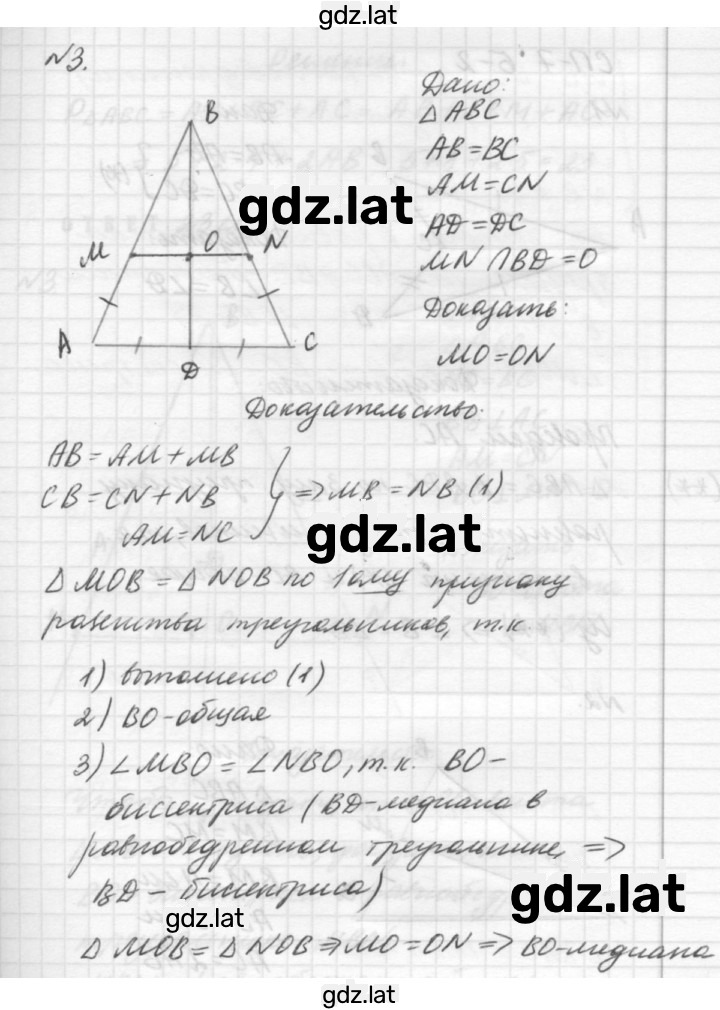 gdz.lat
N3.
B
M
O
N
A
D
C
Дано:
△ ABC
AB=BC
AM=CN
AD=DC
MN ∩ BD = O
Доказать:
MO=ON
gdz.lat
Доказательство:
AB = AM + MB
CB = CN + NB
AM = NC
=> MB = NB (1)
gdz.lat
△ MOB = △ NOB по 1ому признаку
равенства треугольников, т.к.
1) выполнено (1)
2) BO-общая
3) ∠MBO = ∠NBO, т.к. BO-
биссектриса (BD-медиана в
равнобедренном треугольнике, =>
BD - биссектриса)
gdz.lat
gdz.lat
△ MOB = △ NOB => MO=ON => BO-медиана
gdz.lat